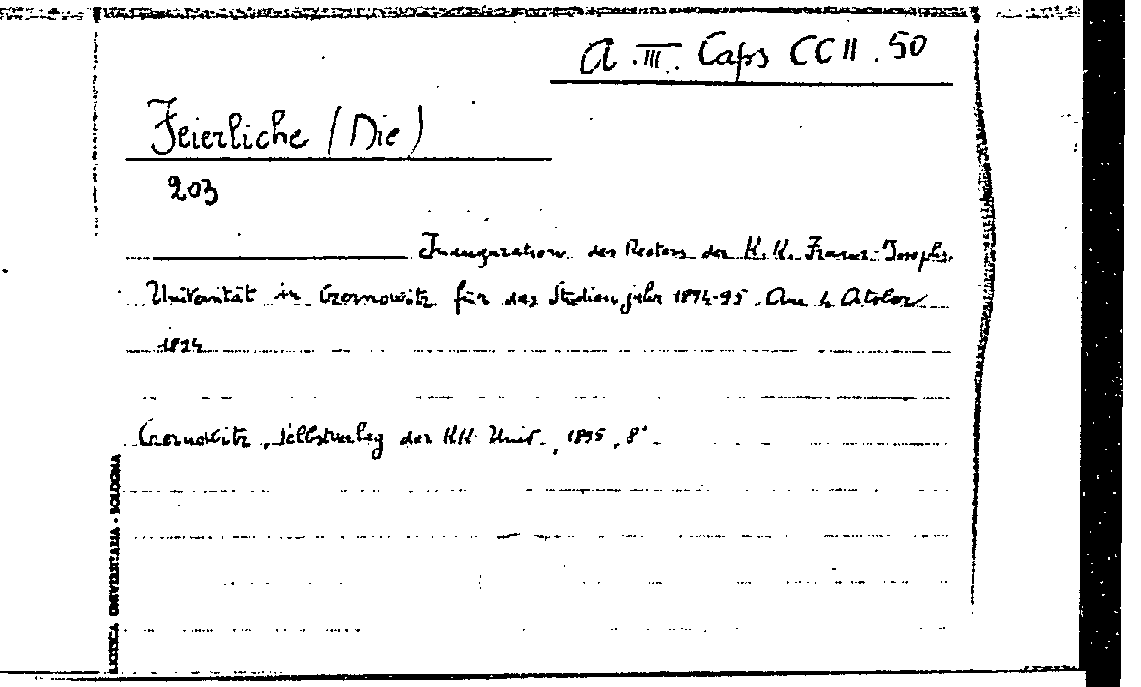 A. III. Caps CCII. 50
Feierliche (Die)
203
Inauguration des Rectors der K. K. Franz-Josephs.
Universität in Czernowitz für das Studienjahr 1894-95. Am 4 October
1894
Czernowitz, Selbstverlag der KK Univ., 1895, 8°
UNIVERSITARIA - BOLOGNA